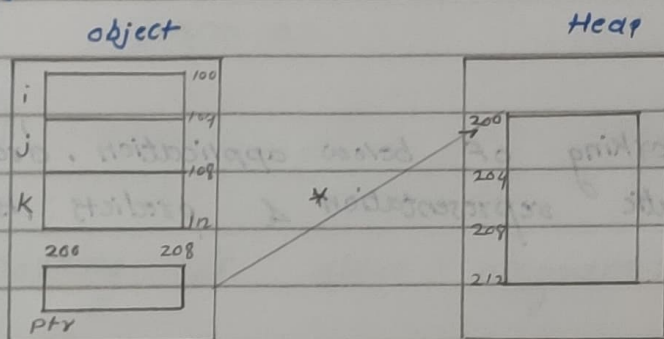 object
Heap
i
100
104
j
108
K
112
200
208
ptr
*
200
204
208
212